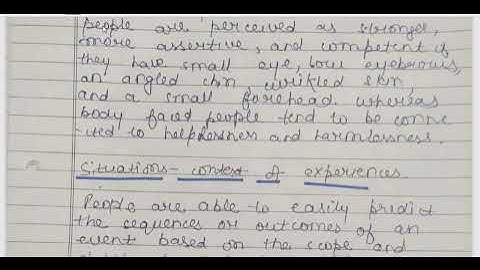 people are perceived as stronger,
more assertive, and competent if
they have small eye, low eyebrows,
an angled chin wrikled skin,
and a small forehead. whereas
body faced people tend to be conne
-cted to helplessness and harmlessness.
Situations - context of experiences
People are able to easily predict
the sequences or outcomes of an
event based on the scope and